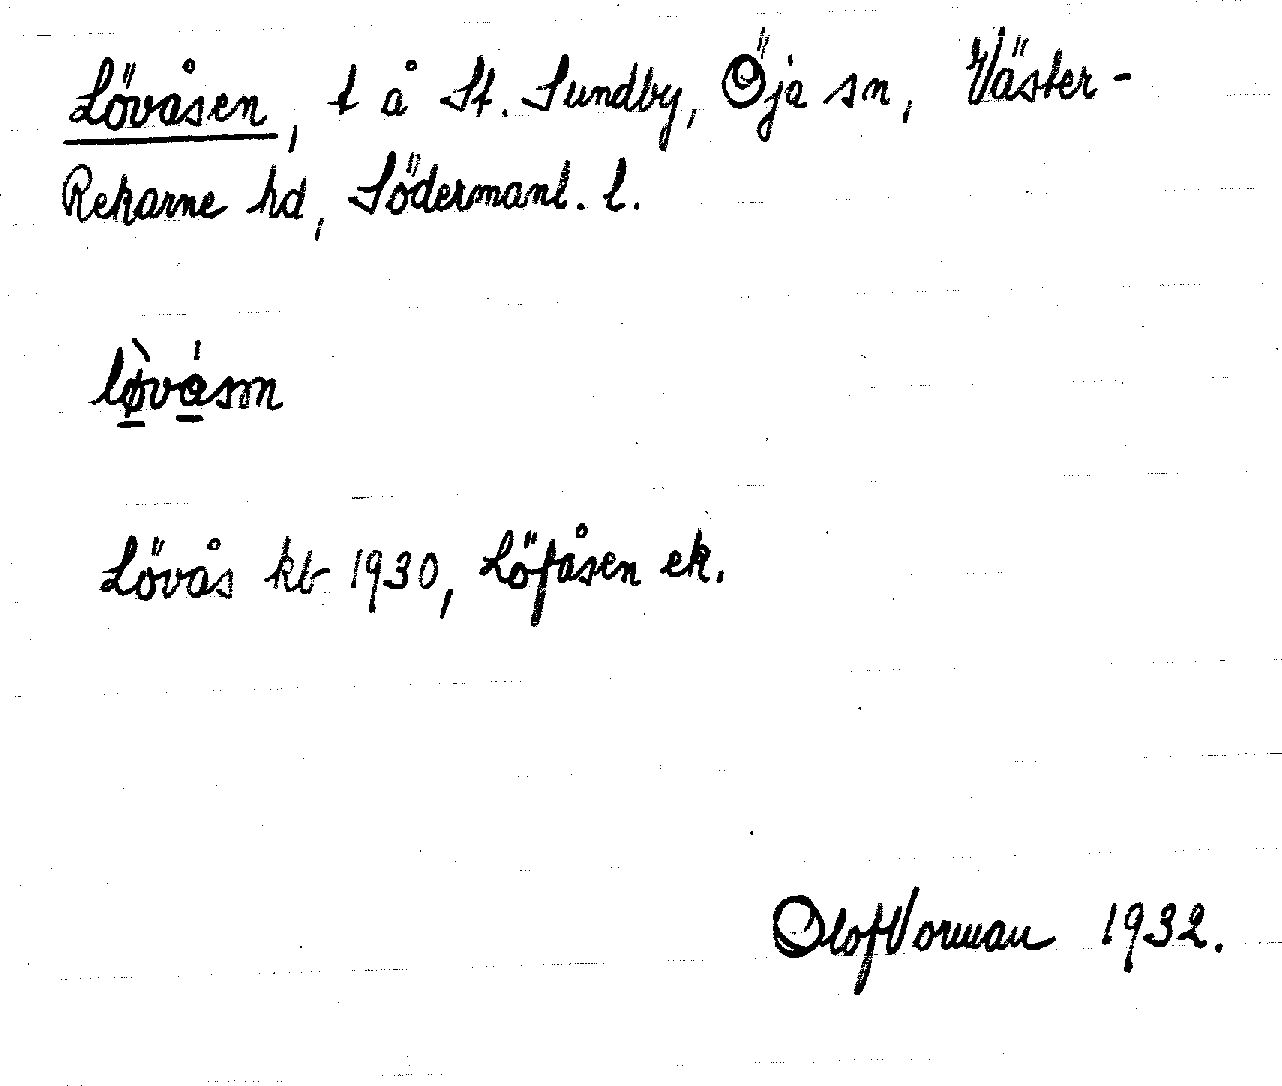 Lövåsen, t å St. Sundby, Öja sn, Väster-
Rekarne hd, Södermanl. l.
lø̀vásm
Lövås kb 1930, Löfåsen ek.
Olof Vorman 1932.